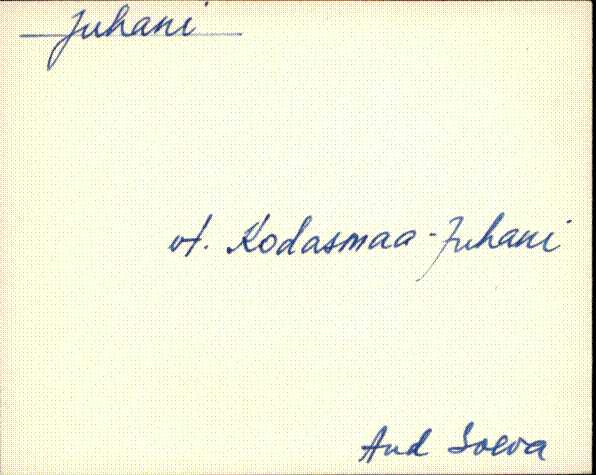 Juhani
vt. Kodasmaa-Juhani
And Soeva